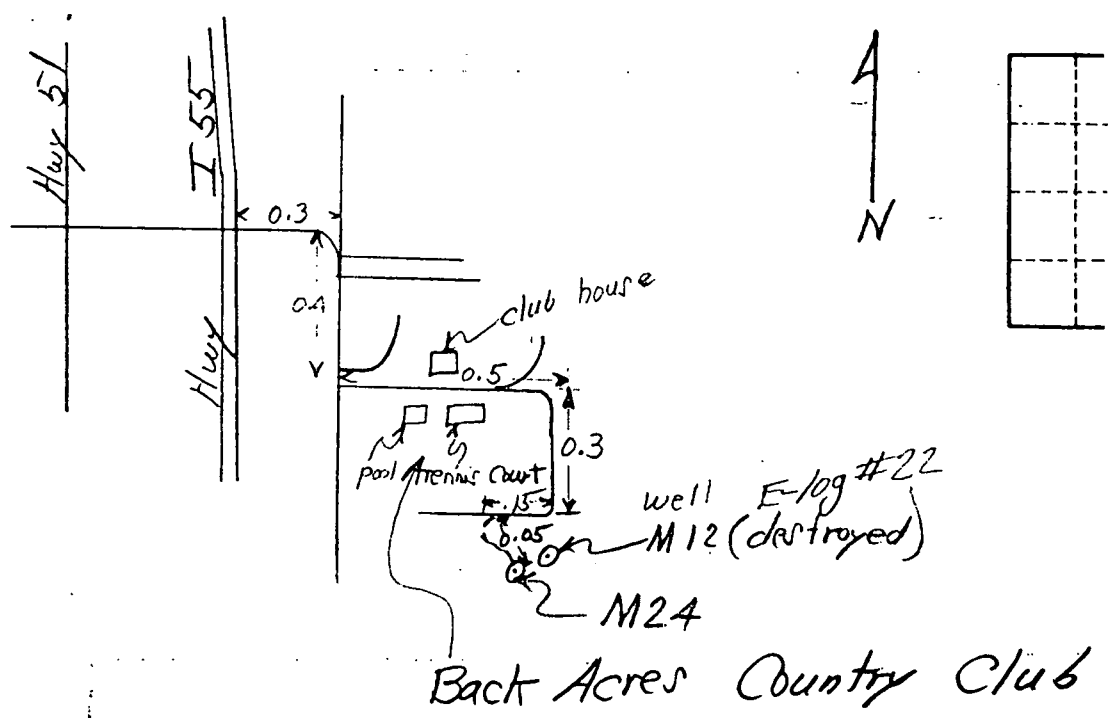 Hwy 51
I 55
Hwy
0.3
0.4
N
club house
0.5
0.3
pool
tennis Court
.15
0.05
well E-log #22
M12 (destroyed)
M24
Back Acres Country Club